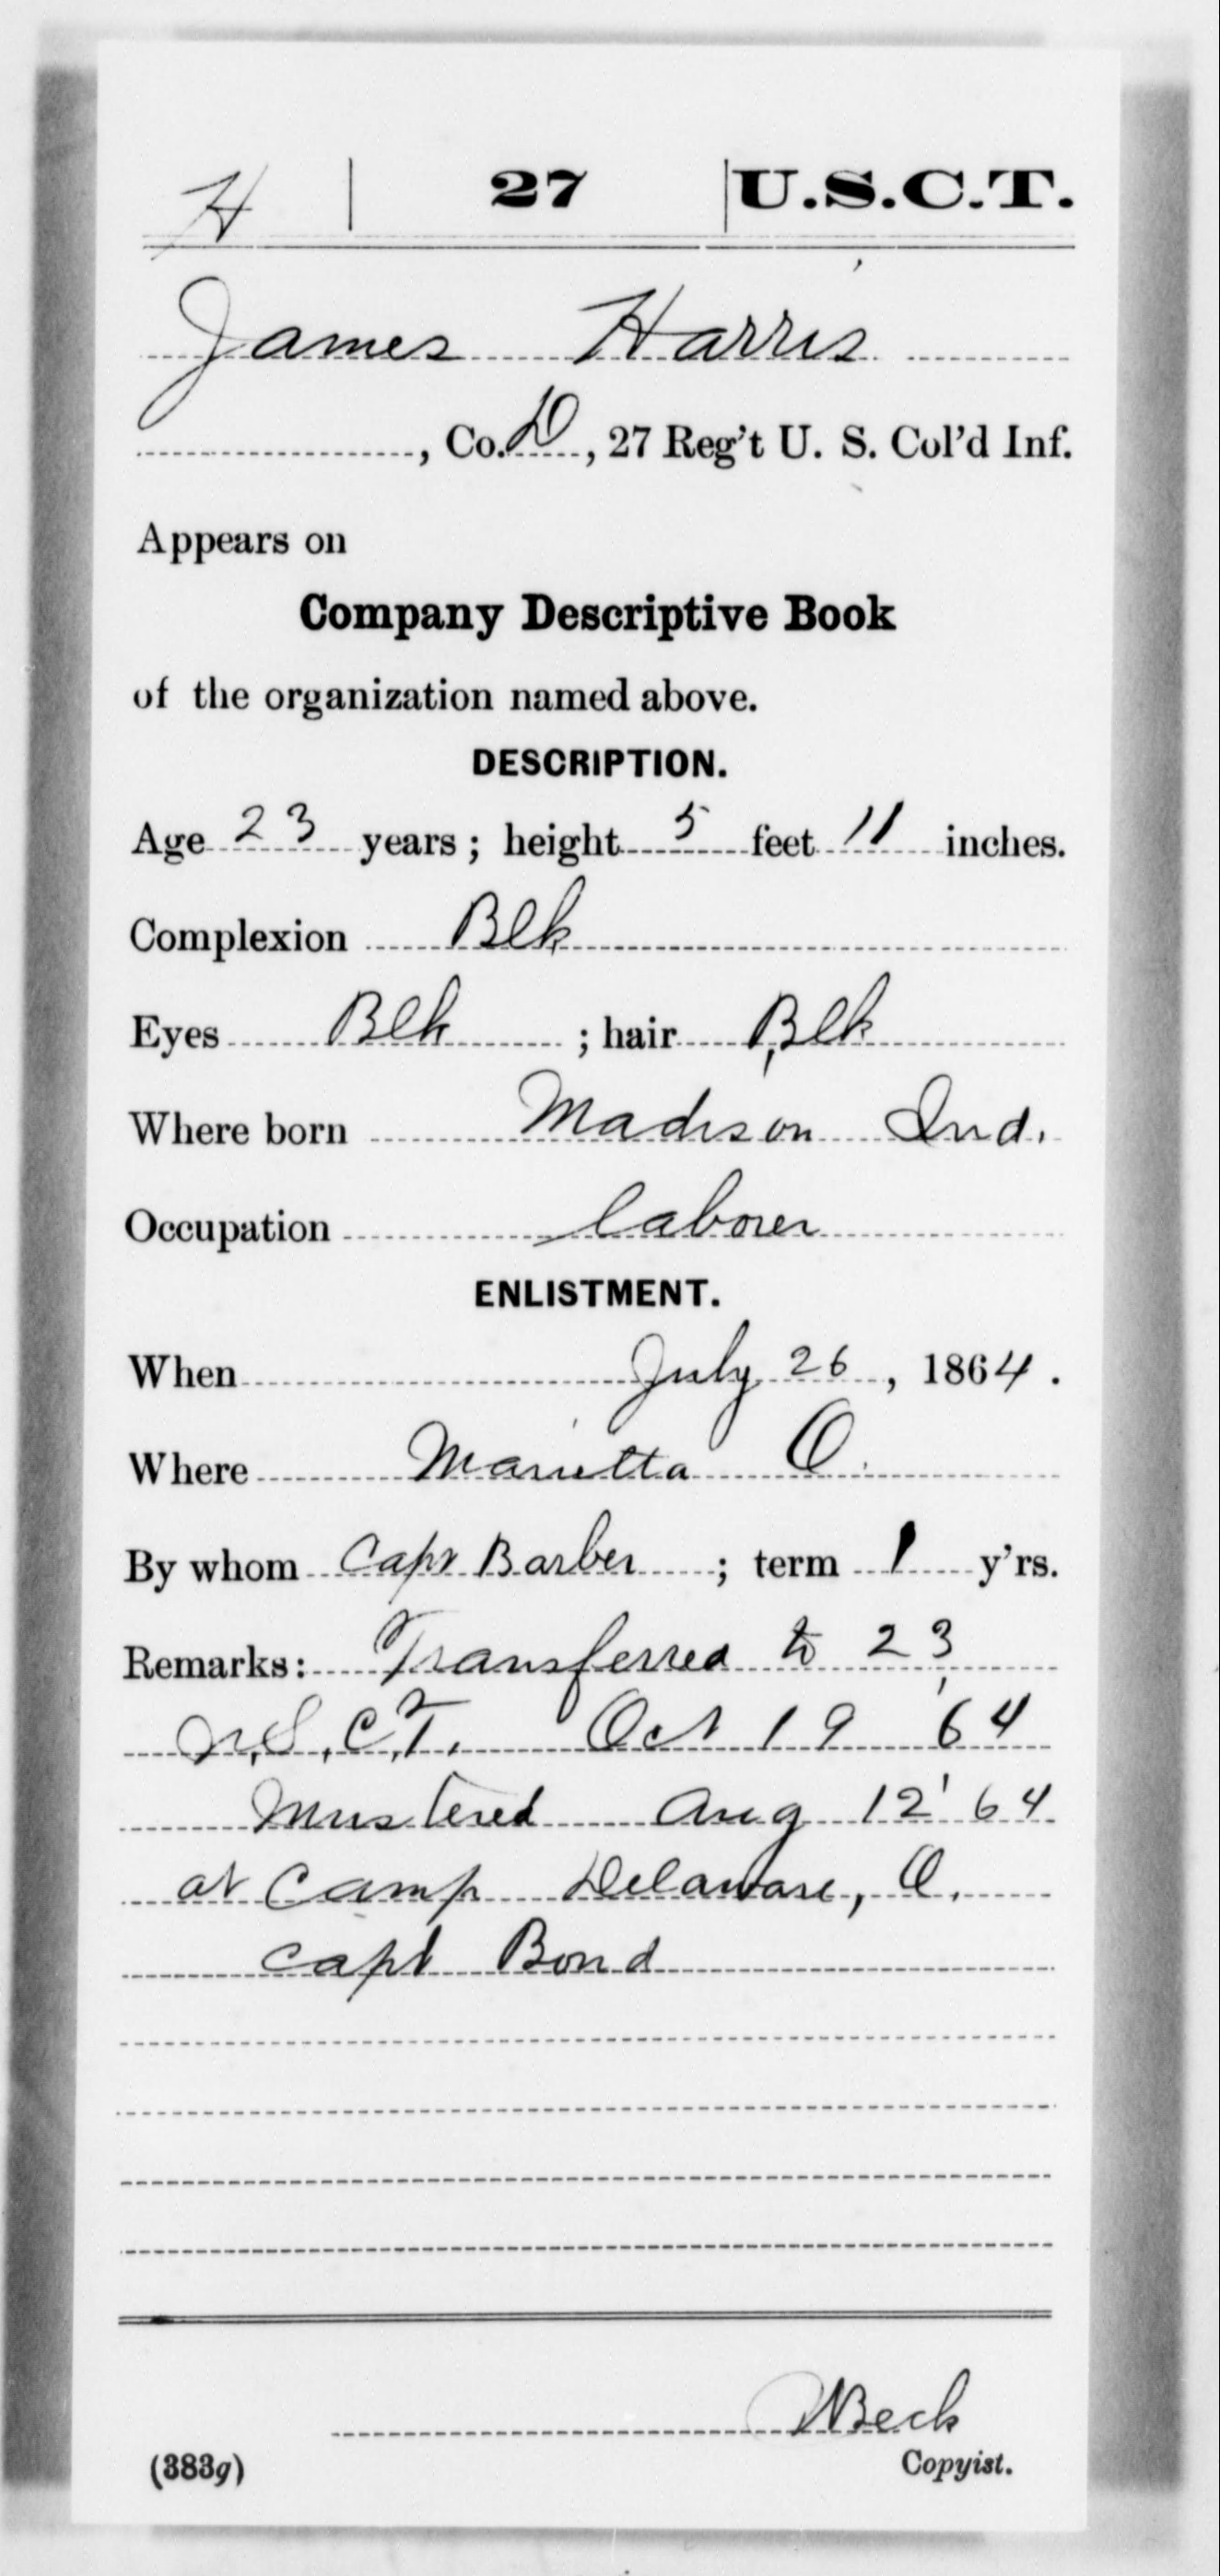 H | 27 | U.S.C.T.
James Harris
, Co. D, 27 Reg't U. S. Col'd Inf.
Appears on
Company Descriptive Book
of the organization named above.
DESCRIPTION.
Age 23 years; height 5 feet 11 inches.
Complexion Blk
Eyes Blk ; hair Blk
Where born Madison Ind.
Occupation laborer
ENLISTMENT.
When July 26, 1864.
Where Marietta O.
By whom Capt Barber ; term 1 y'rs.
Remarks: Transferred to 23
U.S.C.T. Oct 19 '64
Mustered Aug 12 '64
at Camp Delaware, O.
Capt Bond
Beck
(383g) Copyist.